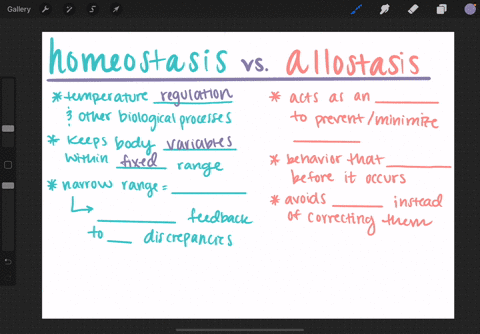 Gallery
homeostasis vs. allostasis
* temperature regulation
& other biological processes
* keeps body variables
within fixed range
* narrow range = ________
________ feedback
to ___ discrepancies
* acts as an ________
to prevent/minimize
________
* behavior that ________
before it occurs
* avoids ______ instead
of correcting them